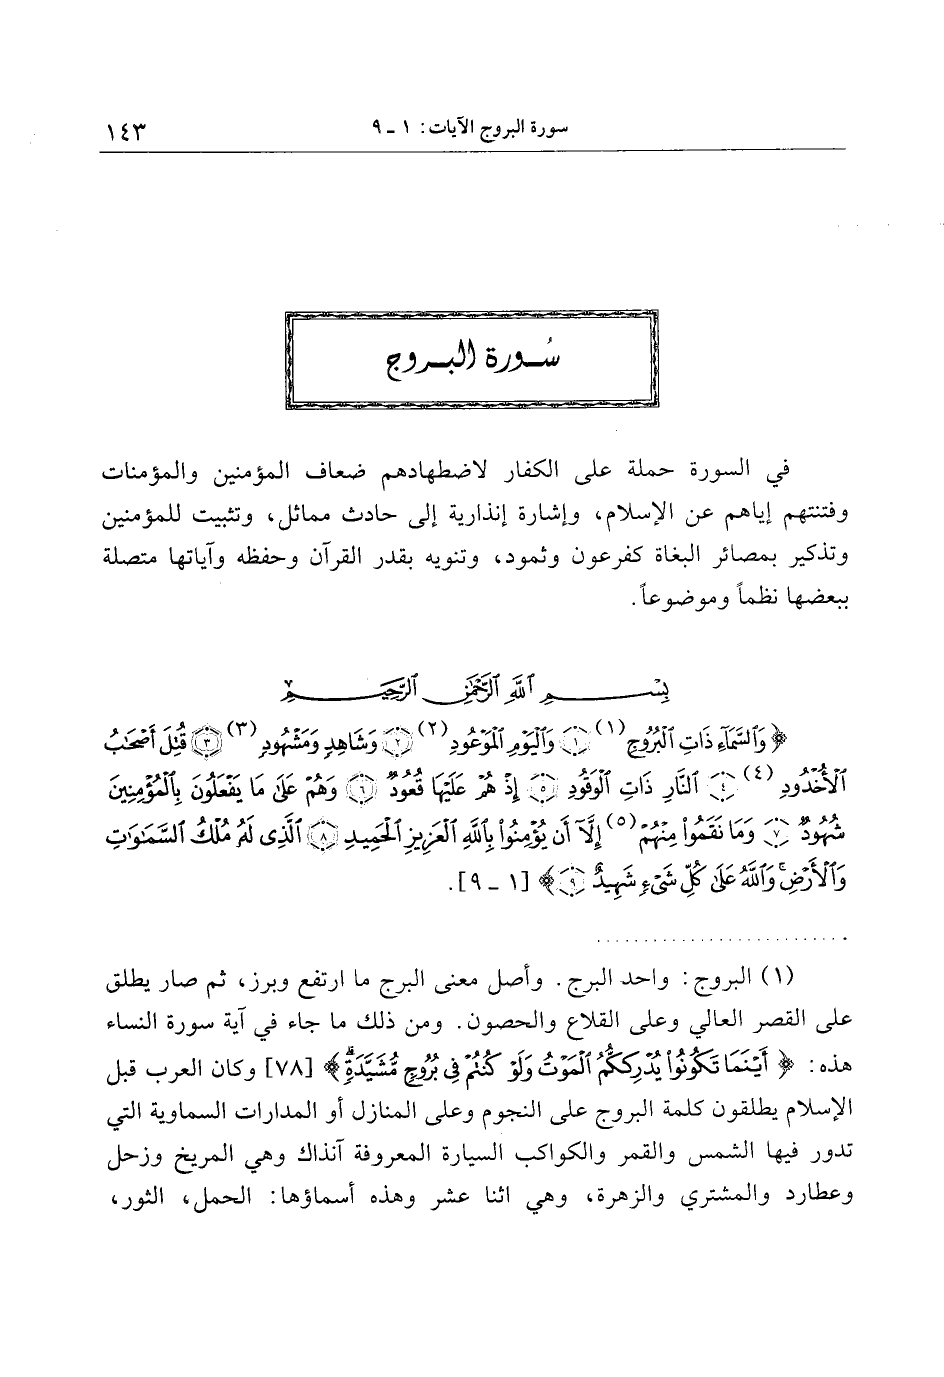 سورة البروج الآيات: ١ ـ ٩ ١٤٣
سُورة البروج
في السورة حملة على الكفار لاضطهادهم ضعاف المؤمنين والمؤمنات
وفتنتهم إياهم عن الإسلام، وإشارة إنذارية إلى حادث مماثل، وتثبيت للمؤمنين
وتذكير بمصائر البغاة كفرعون وثمود، وتنويه بقدر القرآن وحفظه وآياتها متصلة
ببعضها نظماً وموضوعاً.
بِسْمِ ٱللَّهِ ٱلرَّحْمَٰنِ ٱلرَّحِيمِ
﴿ وَٱلسَّمَآءِ ذَاتِ ٱلْبُرُوجِ(١) ١ وَٱلْيَوْمِ ٱلْمَوْعُودِ(٢) ٢ وَشَاهِدٍ وَمَشْهُودٍ(٣) ٣ قُتِلَ أَصْحَٰبُ
ٱلْأُخْدُودِ(٤) ٤ ٱلنَّارِ ذَاتِ ٱلْوَقُودِ ٥ إِذْ هُمْ عَلَيْهَا قُعُودٌ ٦ وَهُمْ عَلَىٰ مَا يَفْعَلُونَ بِٱلْمُؤْمِنِينَ
شُهُودٌ ٧ وَمَا نَقَمُوا۟ مِنْهُمْ(٥) إِلَّآ أَن يُؤْمِنُوا۟ بِٱللَّهِ ٱلْعَزِيزِ ٱلْحَمِيدِ ٨ ٱلَّذِى لَهُۥ مُلْكُ ٱلسَّمَٰوَٰتِ
وَٱلْأَرْضِ ۚ وَٱللَّهُ عَلَىٰ كُلِّ شَىْءٍ شَهِيدٌ ٩ ﴾ [١ ـ ٩].
(١) البروج: واحد البرج. وأصل معنى البرج ما ارتفع وبرز، ثم صار يطلق
على القصر العالي وعلى القلاع والحصون. ومن ذلك ما جاء في آية سورة النساء
هذه: ﴿ أَيْنَمَا تَكُونُوا۟ يُدْرِككُّمُ ٱلْمَوْتُ وَلَوْ كُنتُمْ فِى بُرُوجٍ مُّشَيَّدَةٍ ۗ ﴾ [٧٨] وكان العرب قبل
الإسلام يطلقون كلمة البروج على النجوم وعلى المنازل أو المدارات السماوية التي
تدور فيها الشمس والقمر والكواكب السيارة المعروفة آنذاك وهي المريخ وزحل
وعطارد والمشتري والزهرة، وهي اثنا عشر وهذه أسماؤها: الحمل، الثور،